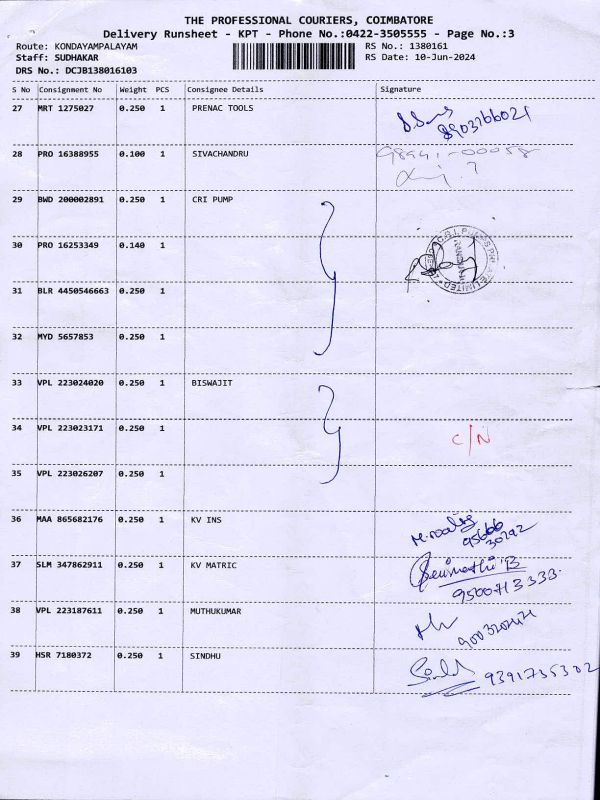 THE PROFESSIONAL COURIERS, COIMBATORE
Delivery Runsheet - KPT - Phone No.:0422-3505555 - Page No.:3
Route: KONDAYAMPALAYAM RS No.: 1380161
Staff: SUDHAKAR RS Date: 10-Jun-2024
DRS No.: DCJB138016103
S No Consignment No Weight PCS Consignee Details Signature
27 MRT 1275027 0.250 1 PRENAC TOOLS
8903766021
28 PRO 16388955 0.100 1 SIVACHANDRU
29 BWD 200002891 0.250 1 CRI PUMP
30 PRO 16253349 0.140 1
31 BLR 4450546663 0.250 1
32 MYD 5657853 0.250 1
33 VPL 223024020 0.250 1 BISWAJIT
34 VPL 223023171 0.250 1 C/N
35 VPL 223026207 0.250 1
36 MAA 865682176 0.250 1 KV INS
95666
30292
37 SLM 347862911 0.250 1 KV MATRIC
9500713333
38 VPL 223187611 0.250 1 MUTHUKUMAR
39 HSR 7180372 0.250 1 SINDHU
9391735302